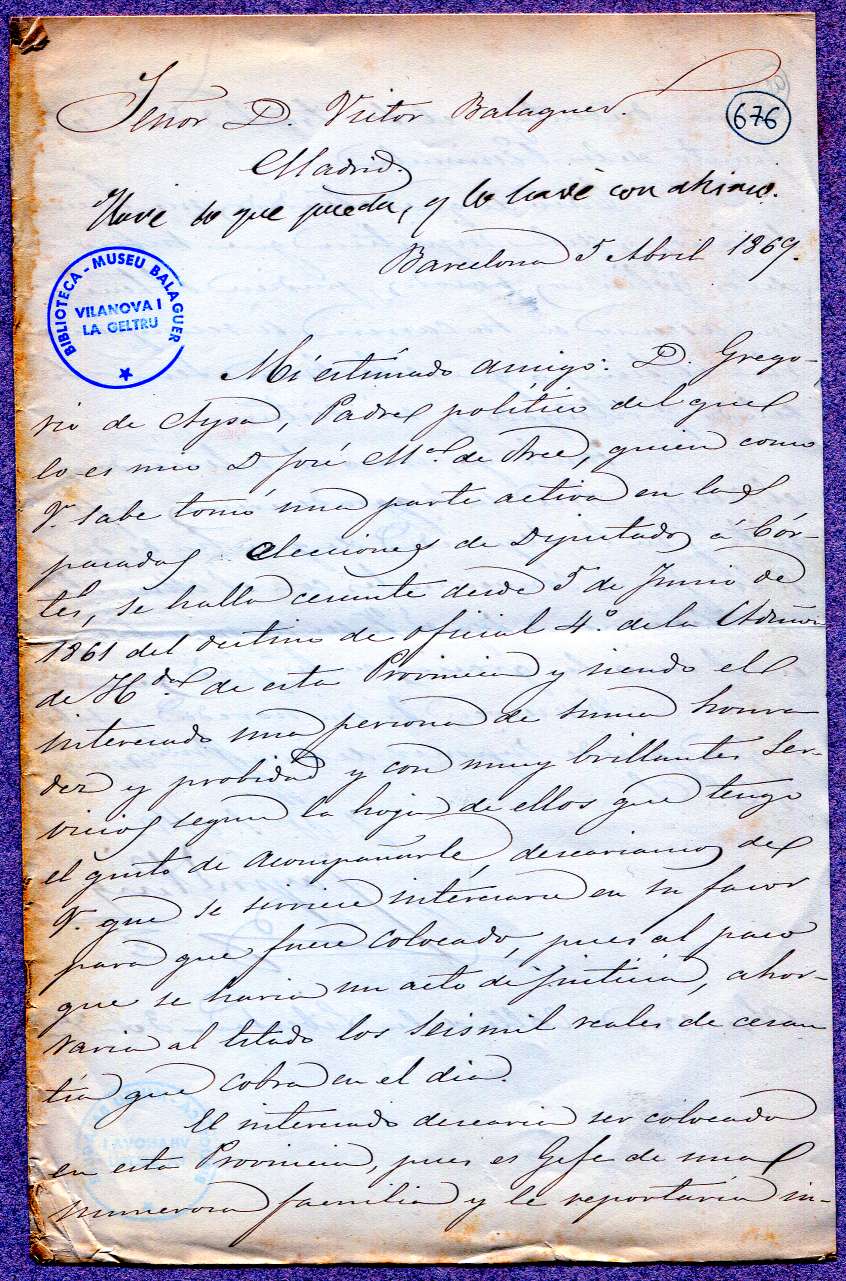 Señor D. Victor Balaguer.
676
Madrid.
Haré lo que pueda, y lo haré con ahinco.
Barcelona 5 Abril 1869.
BIBLIOTECA - MUSEU BALAGUER
VILANOVA I
LA GELTRU
Mi estimado amigo: D. Grego-
rio de Aysa, Padre político del que
lo es mio D José Mª. de Arce, quien como
V. sabe tomó una parte activa en las
pasadas elecciones de Diputados á Cór-
tes, se halla cesante desde 5 de Junio de
1861 del destino de oficial 4º. de la Admon
de Hda. de esta Provincia y siendo el
interesado una persona de suma honra
dez y probidad y con muy brillantes Ser-
vicios segun la hoja de ellos que tengo
el gusto de acompañarle, desearíamos de
V. que se sirviese interesarse en su favor
para que fuese colocado, pues al paso
que se haria un acto de justicia, ahor-
raria al Estado los seismil reales de cesan
tía que cobra en el dia.
El interesado desearia ser colocado
en esta Provincia, pues es Gefe de una
numerosa familia y le reportaría in-